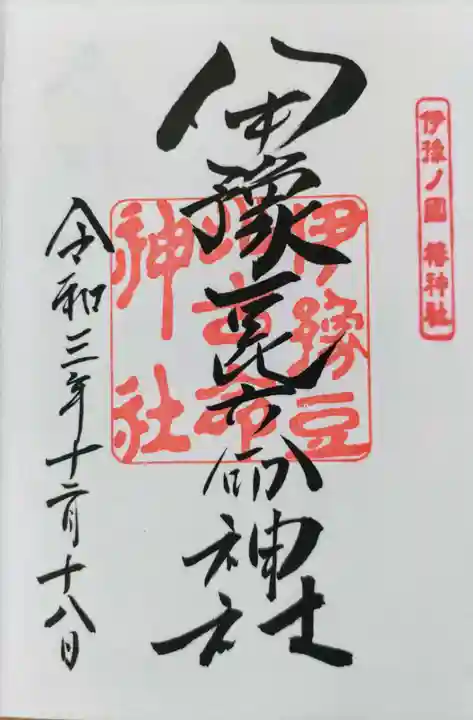 伊豫ノ國 椿神社
伊豫豆比古命神社
伊豫豆比古命神社
令和三年十二月十八日